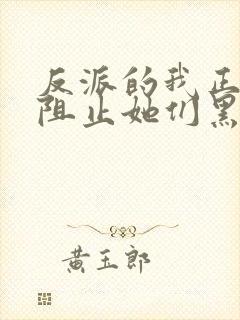 反派的我正
阻止她们黑
黄玉郎